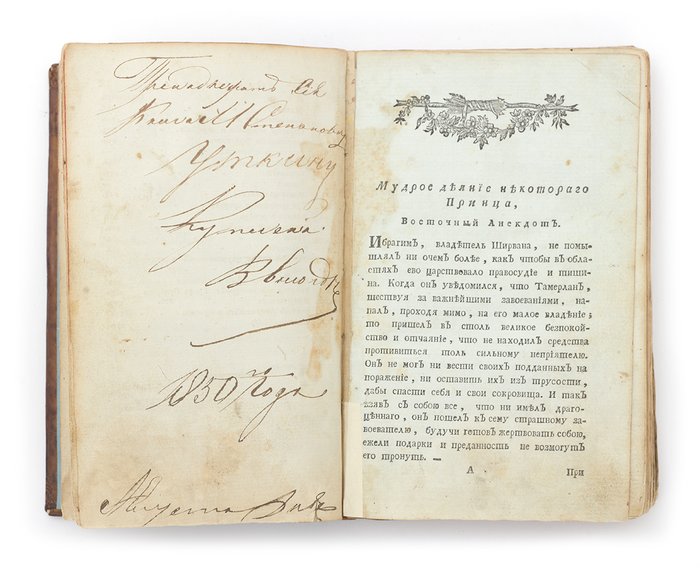 Сiя
Степановичу
Уткину
Купленая
1830 го Года
Августа
Мудрое дѣянїе нѣкотораго
Принца,
Восточный Анекдотъ.
Ибрагимъ, владѣтель Ширвана, не помы-
шлялъ ни очемъ болѣе, какъ чтобы въ обла-
стяхъ ево царствовало правосудїе и тиши-
на. Когда онъ уведомился, что Тамерланъ,
шествуя за важнѣйшими завоеванїями, на-
палъ, проходя мимо, на его малое владѣнїе;
то пришелъ въ столь великое безпокой-
ство и отчаянїе, что не находилъ средства
противиться толь сильному непрїятелю.
Онъ не могъ ни вести своихъ подданныхъ на
пораженїе, ни оставить ихъ изъ трусости,
дабы спасти себя и свои сокровища. И такъ
взявъ съ собою все, что ни имѣлъ драго-
цѣннаго, онъ пошелъ къ сему страшному за-
воевателю, будучи готовъ жертвовать собою,
ежели подарки и преданность не возмогутъ
его тронуть. —
А При